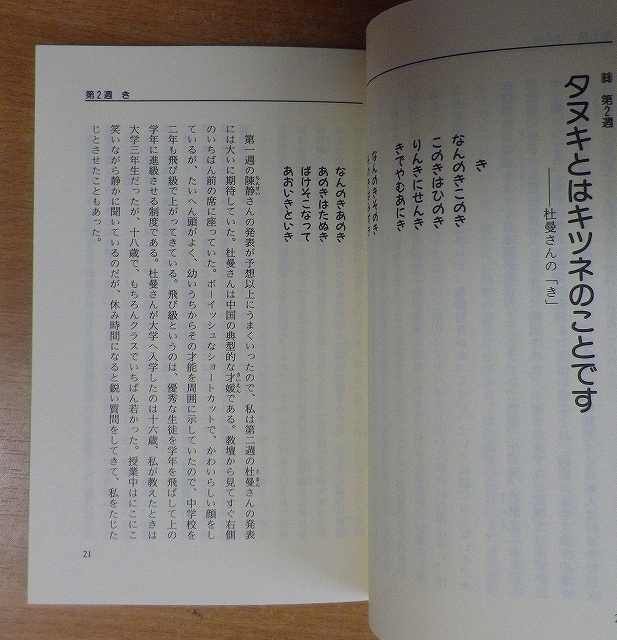 第2週
タヌキとはキツネのことです
――杜曼さんの「き」
き
なんのきこのき
このきはひのき
りんきにせんき
きでやむあにき
なんのきそのき
第2週 き
なんのきあのき
あのきはたぬき
ばけそこなって
あおいきといき
第一週の陳静さんの発表が予想以上にうまくいったので、私は第二週の杜曼さんの発表
には大いに期待していた。杜曼さんは中国の典型的な才媛である。教壇から見てすぐ右側
のいちばん前の席に座っていた。ボーイッシュなショートカットで、かわいらしい顔をし
ているが、たいへん頭がよく、幼いうちからその才能を周囲に示していたので、中学校を
二年も飛び級で上がってきている。飛び級というのは、優秀な生徒を学年を飛ばして上の
学年に進級させる制度である。杜曼さんが大学へ入学したのは十六歳、私が教えたときは
大学三年生だったが、十八歳で、もちろんクラスでいちばん若かった。授業中はにこにこ
笑いながら静かに聞いているのだが、休み時間になると鋭い質問をしてきて、私をたじた
じとさせたこともあった。
21